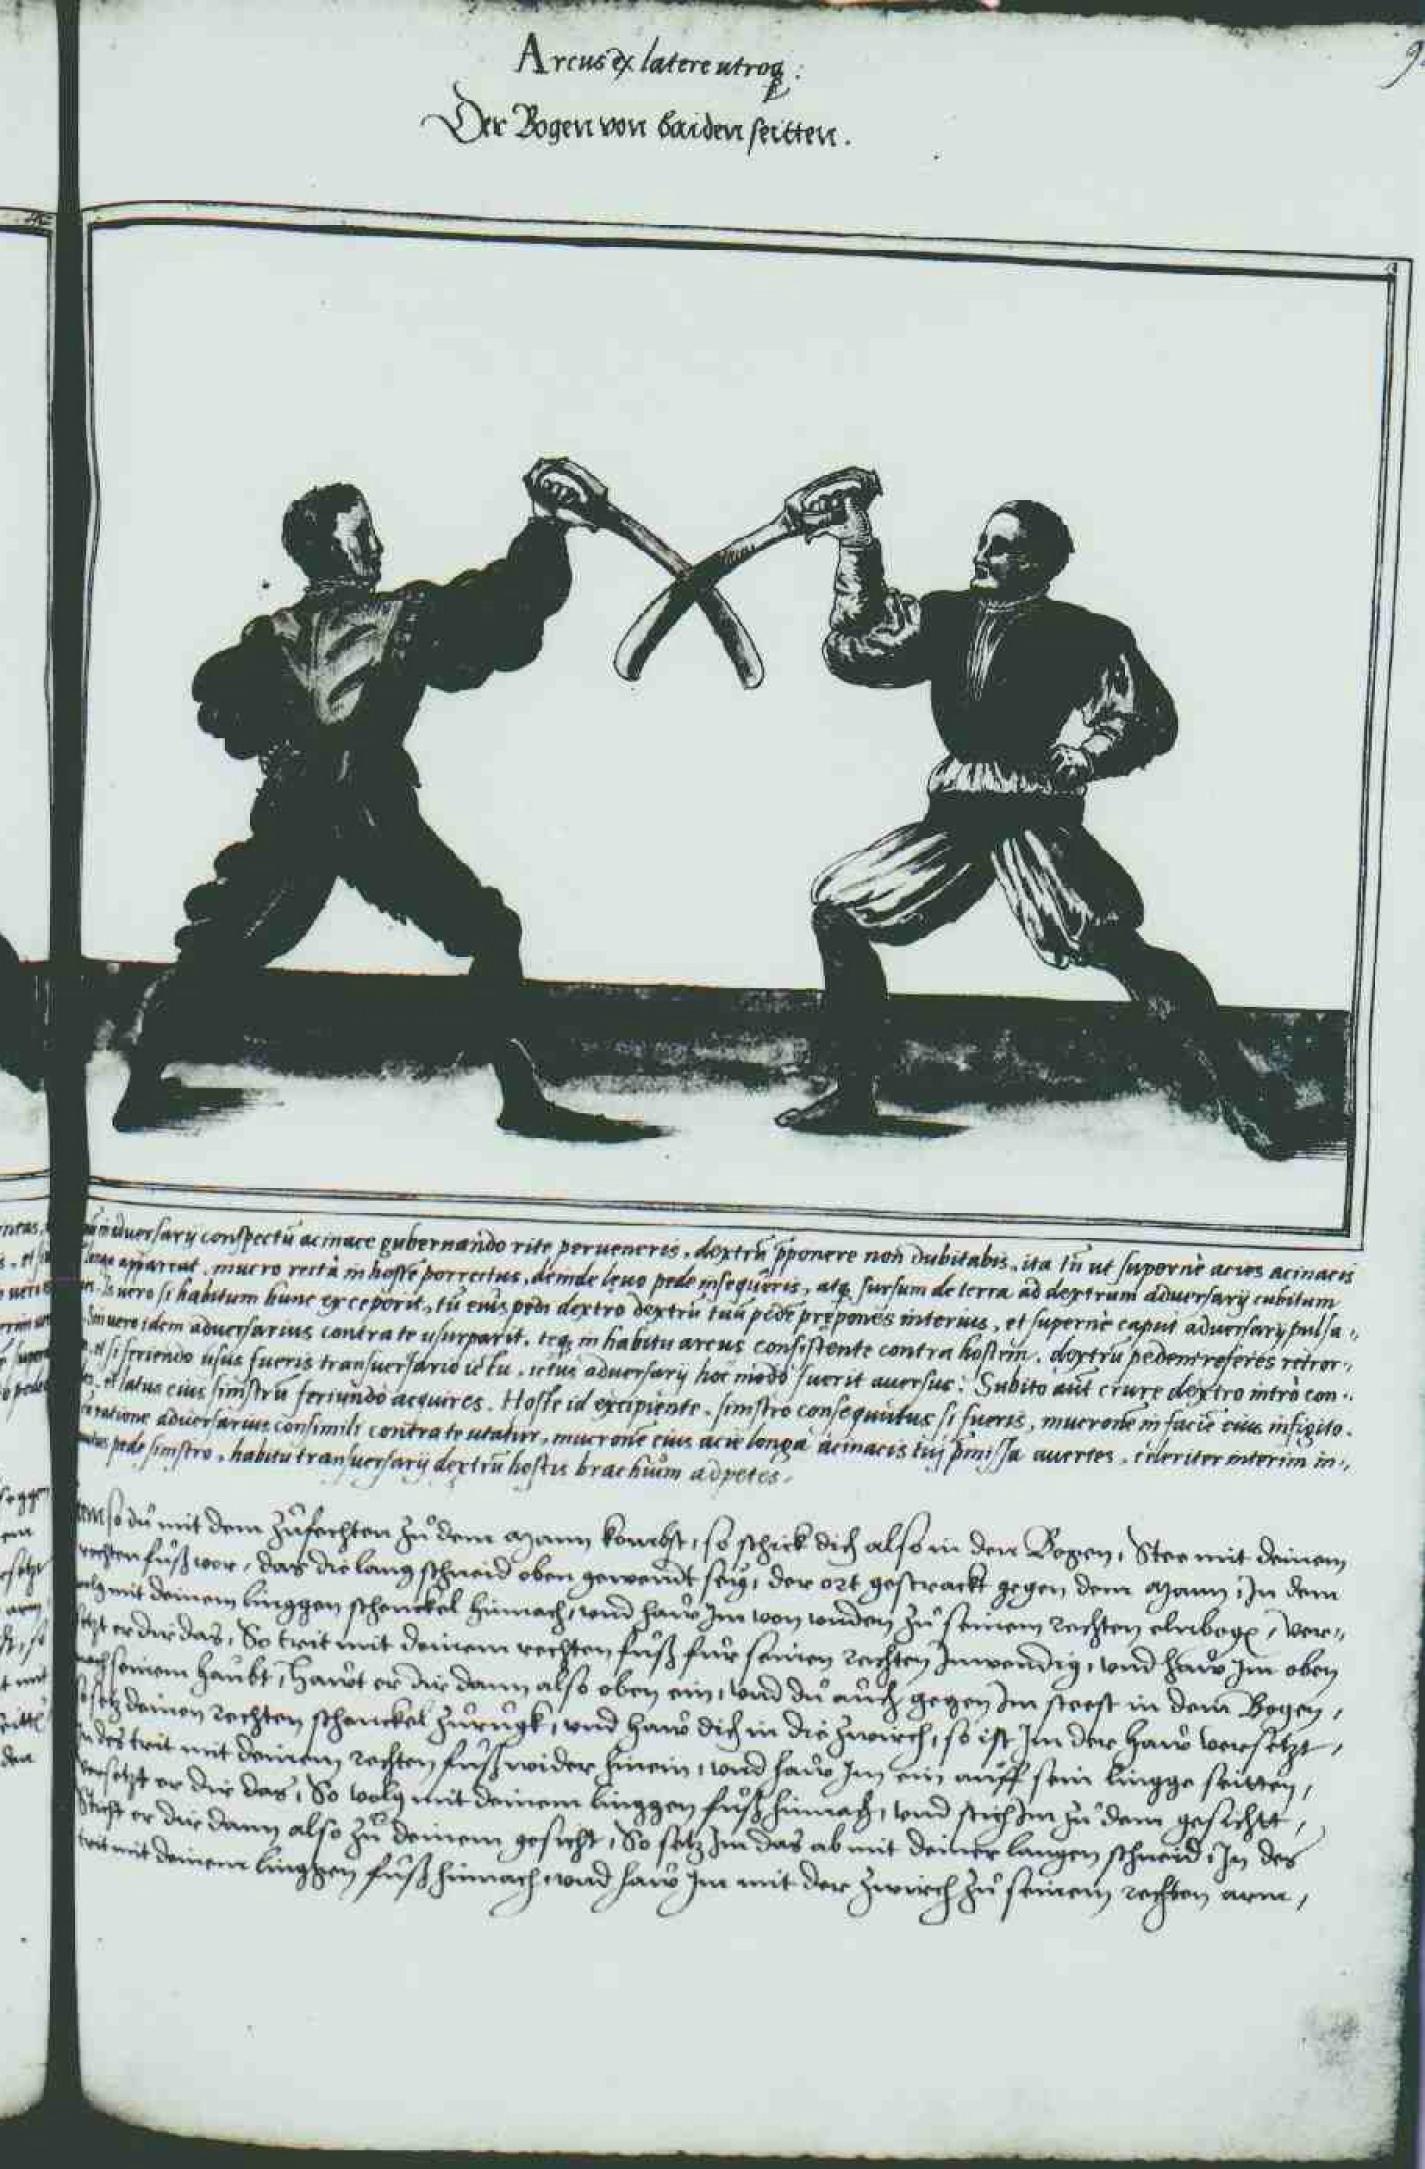 Arcus ex latere utroq:
Der Bogen von baiden seitten.
adversarij conspectũ acinace gubernando rite perveneris, dextrũ p̃ponere non dubitabis, ita tũ ut supernè acies acinacis
appareat, mucro rectà in hostẽ porrectus, deinde levo pede insequeris, atq̃ sursum de terra ad dextrum adversarij cubitum
Is vero si habitum hunc exceperit, tũ eius pedi dextro dextrũ tuũ pedẽ prepones interius, et supernè caput adversarij pulsa
Sin vero idem adversarius contra te usurparit, teq̃ in habitu arcus consistente contra hostem, dextrũ pedem referes retror
et si feriendo usus fueris transversario ictu, ictus adversarij hoc modo fuerit aversus: Subito aũt crure dextro intrò con
et latus eius sinistrũ feriundo acquires. Hoste id excipiente, sinistro consequutus si fueris, mucronẽ in faciẽ eius infigito.
ratione adversarius consimili contra te utatur, mucronẽ eius acie longa acinacis tui p̃missa avertes, celeriter interim in
pede sinistro, habitu transversarij dextrũ hostis brachium adpetes.
so dũ mit dem zůfechten zů dem Mann kombst, so schick dich also in den Bogen, Stee mit deinem
rechten fůß vor, das die lang schneid oben gewendt seÿ, der ort gestrackt gegen dem Mann, In dem
volg mit deinem linggen schenckel hinnach, und haw Im von unden zů seinem rechten elnbogen, Ver
setzt er dir das, So trit mit deinem rechten fůß für seinen rechten Inwendig, und haw Im oben
nach seinem haubt, Hawt er dir dann also oben ein, und dů auch gegen Im steest in dem Bogen,
so setz deinen rechten schenckel zůrugk, und haw dich in die zwirch, so ist Im der haw versetzt,
In des trit mit deinem rechten fůß wider hinein, und haw Im ein auff sein lingge seitten,
versetzt er dir das, So volg mit deinem linggen fůß hinnach, und stich Im zů dem gesicht,
Sticht er dir dann also zů deinem gesicht, So setz Im das ab mit deiner langen schneid, In des
trit mit deinem linggen fůß hinnach, und haw Im mit der zwirch zů seinem rechten arm,